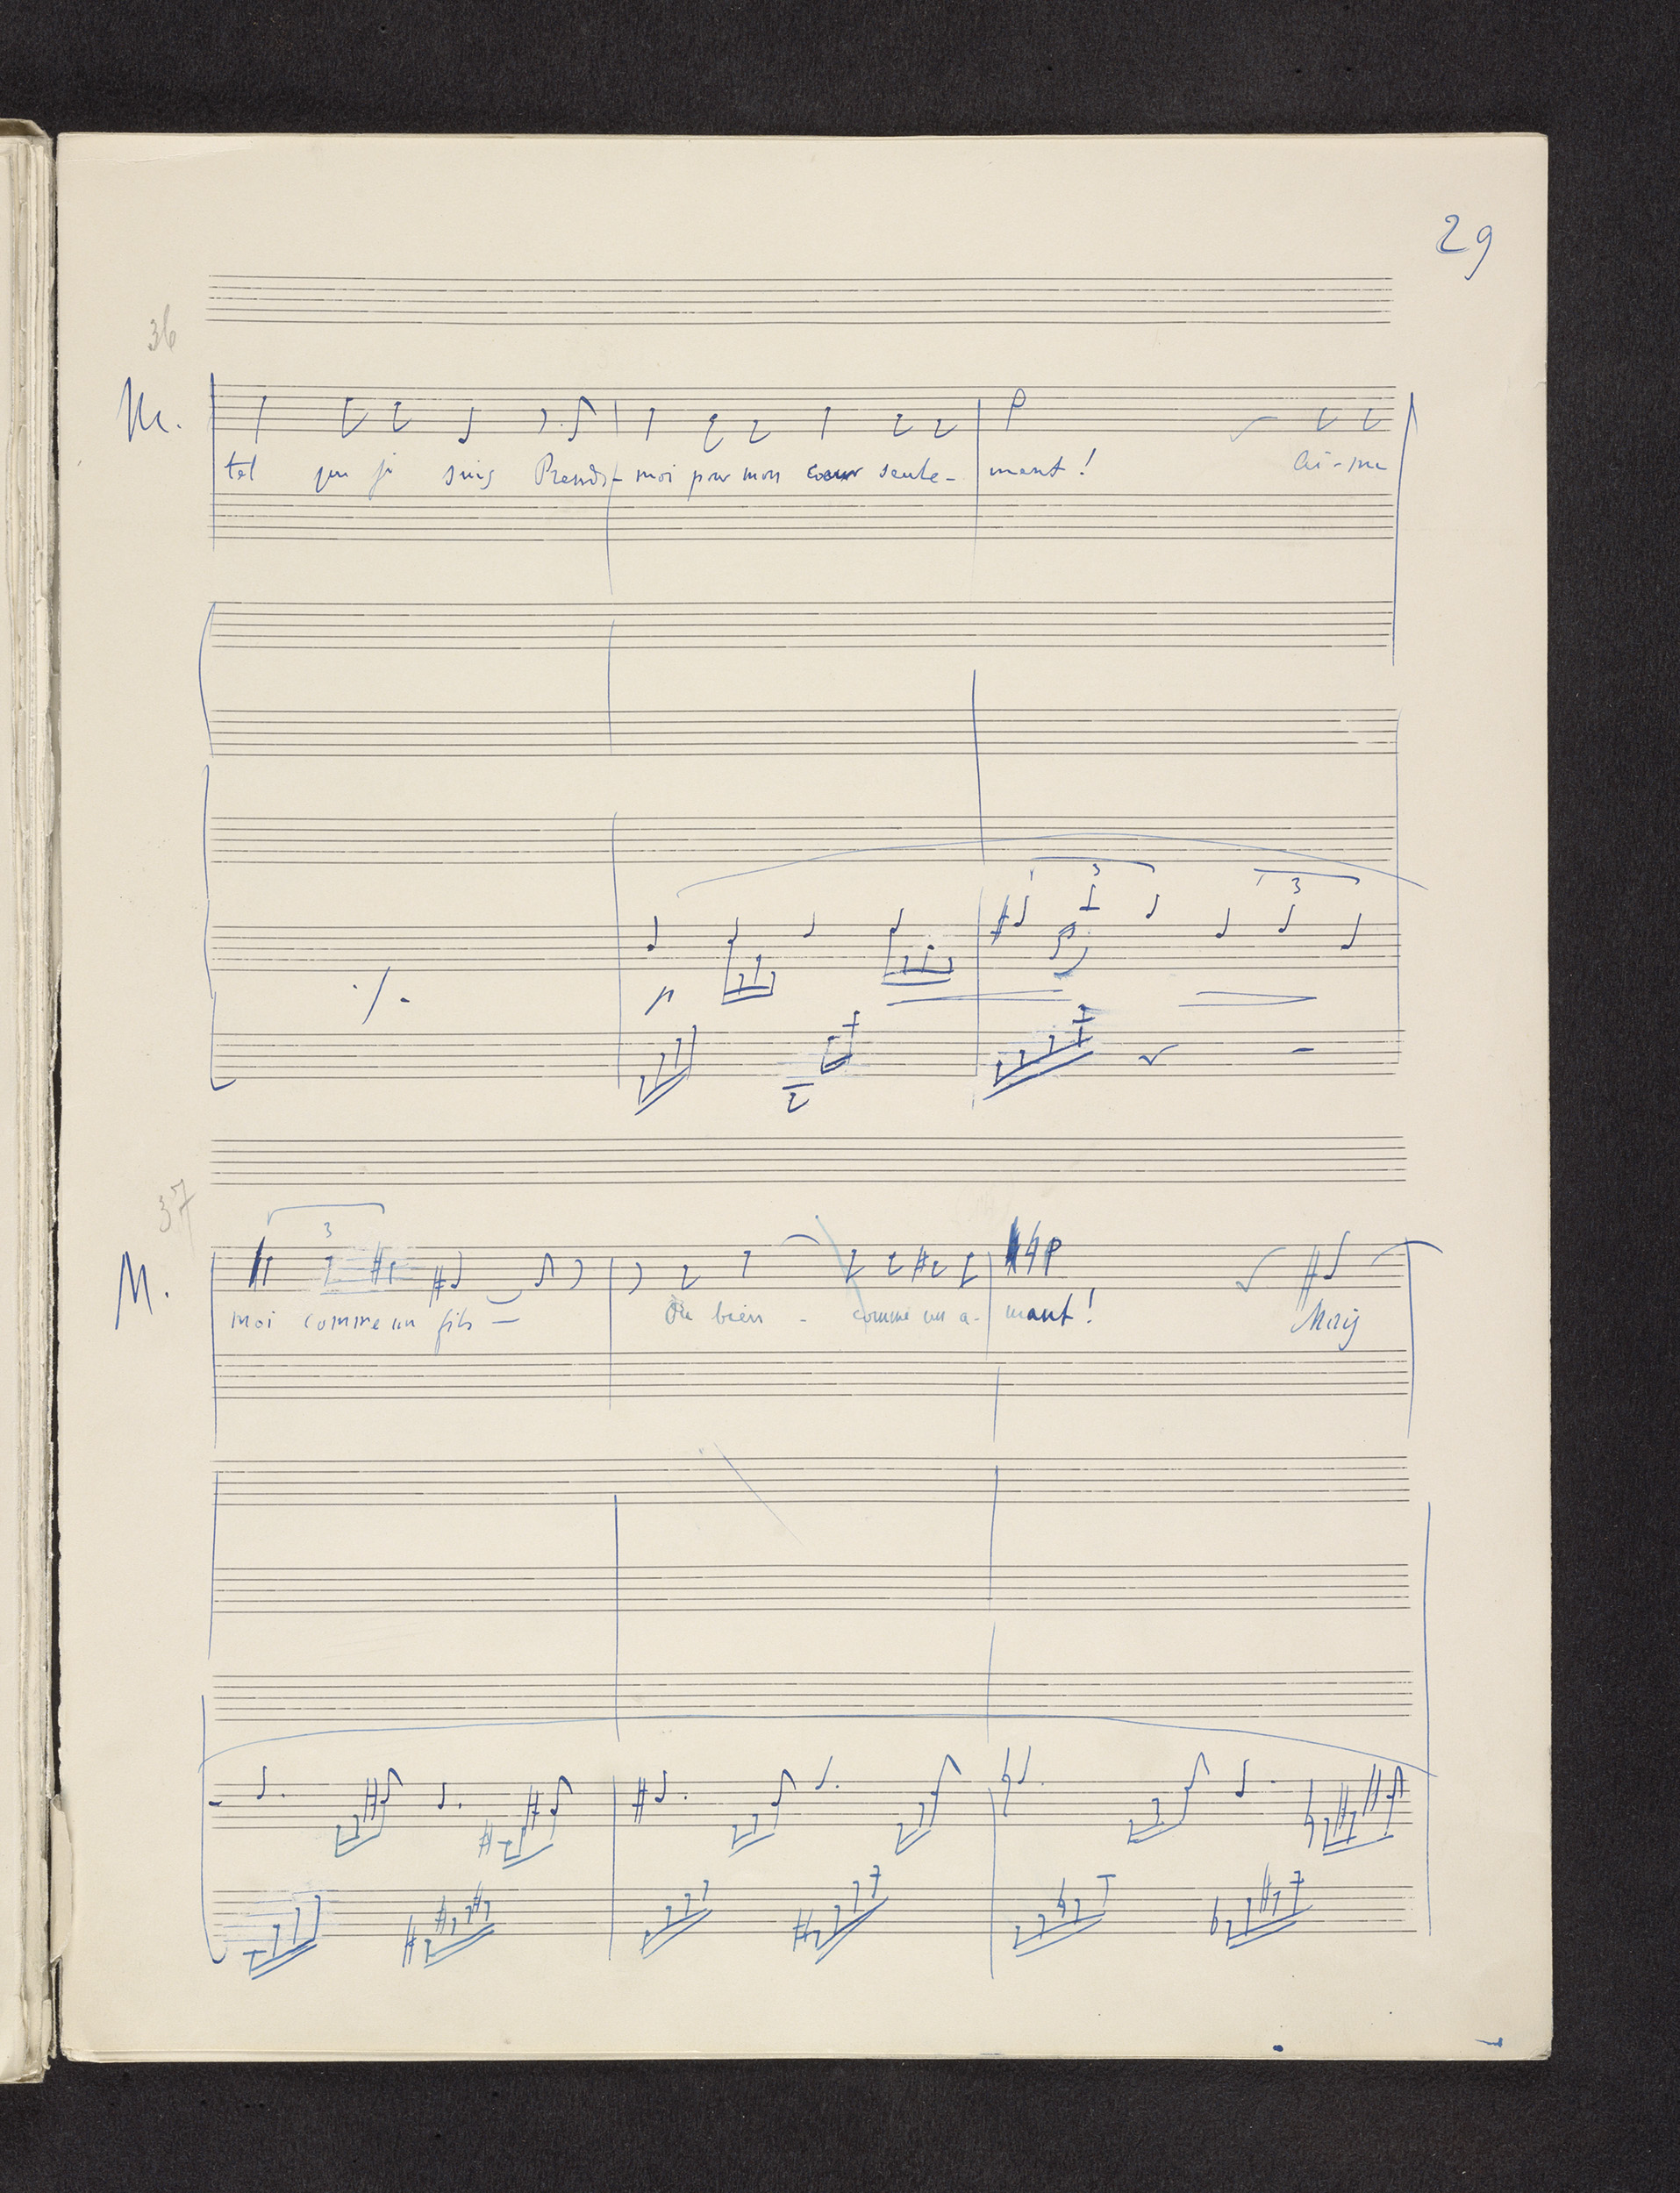 29
36
M.
tel que je suis Prends- moi pour mon coeur seule- ment ! Ai-me
3 3
p
37
3
M.
moi comme un fils — Ou bien - comme un a- mant ! Mais